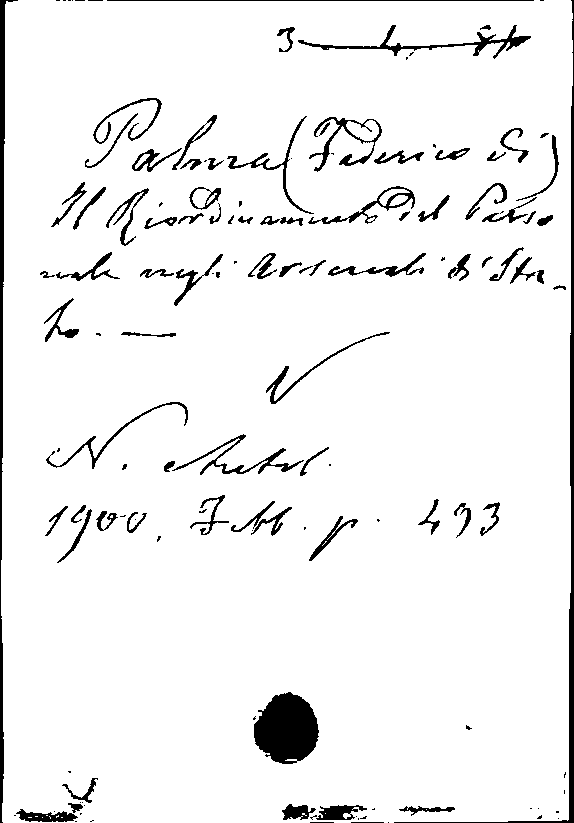 3 4
Palma (Federico di)
Il Riordinamento del Perso
nale negli Arsenali di Sta-
to. —
N. Antol.
1900. Febb. p. 493